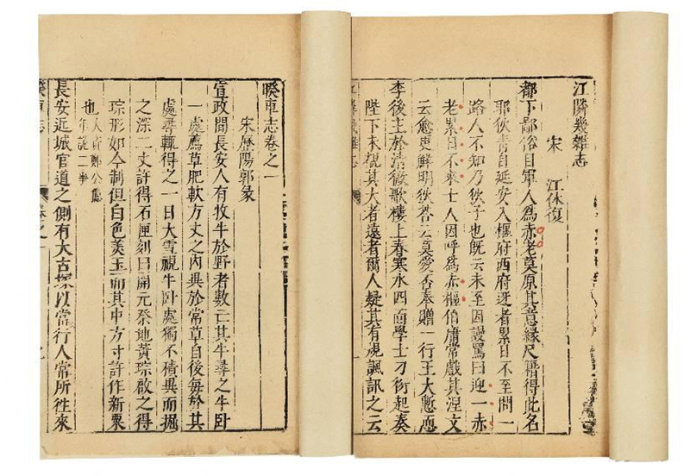 江隣幾雜志
宋 江休復
都下鄙俗目軍人為赤老莫原其意緣尺籍得此名
耶狄青自延安入樞府西府迓者累日不至問一
路人不知乃狄子也既云未至因謾罵曰迎一赤
老累日不來士人因呼為赤樞伯庸常戲其涅文
云愈更鮮明狄答云莫愛否奉贈一行王大慙恧
李後主於清微歌樓上春寒水四面學士刁衎起奏
陛下未覩其大者遠者爾人疑其有規諷訊之云
睽車志卷之一
宋歷陽郭彖
宣政間長安人有牧牛於野者數亡其牛尋之牛卧
一處薦草肥軟方丈之內異於常草自後每於其
處尋輒得之一日大雪視牛卧處獨不積異而掘
之深二丈許得石匣刻曰開元祭地黃琮啟之得
琮形如今制但白色美玉而其中方寸許作新栗
也
長安近城官道之側有大古塚以當行人常所往來